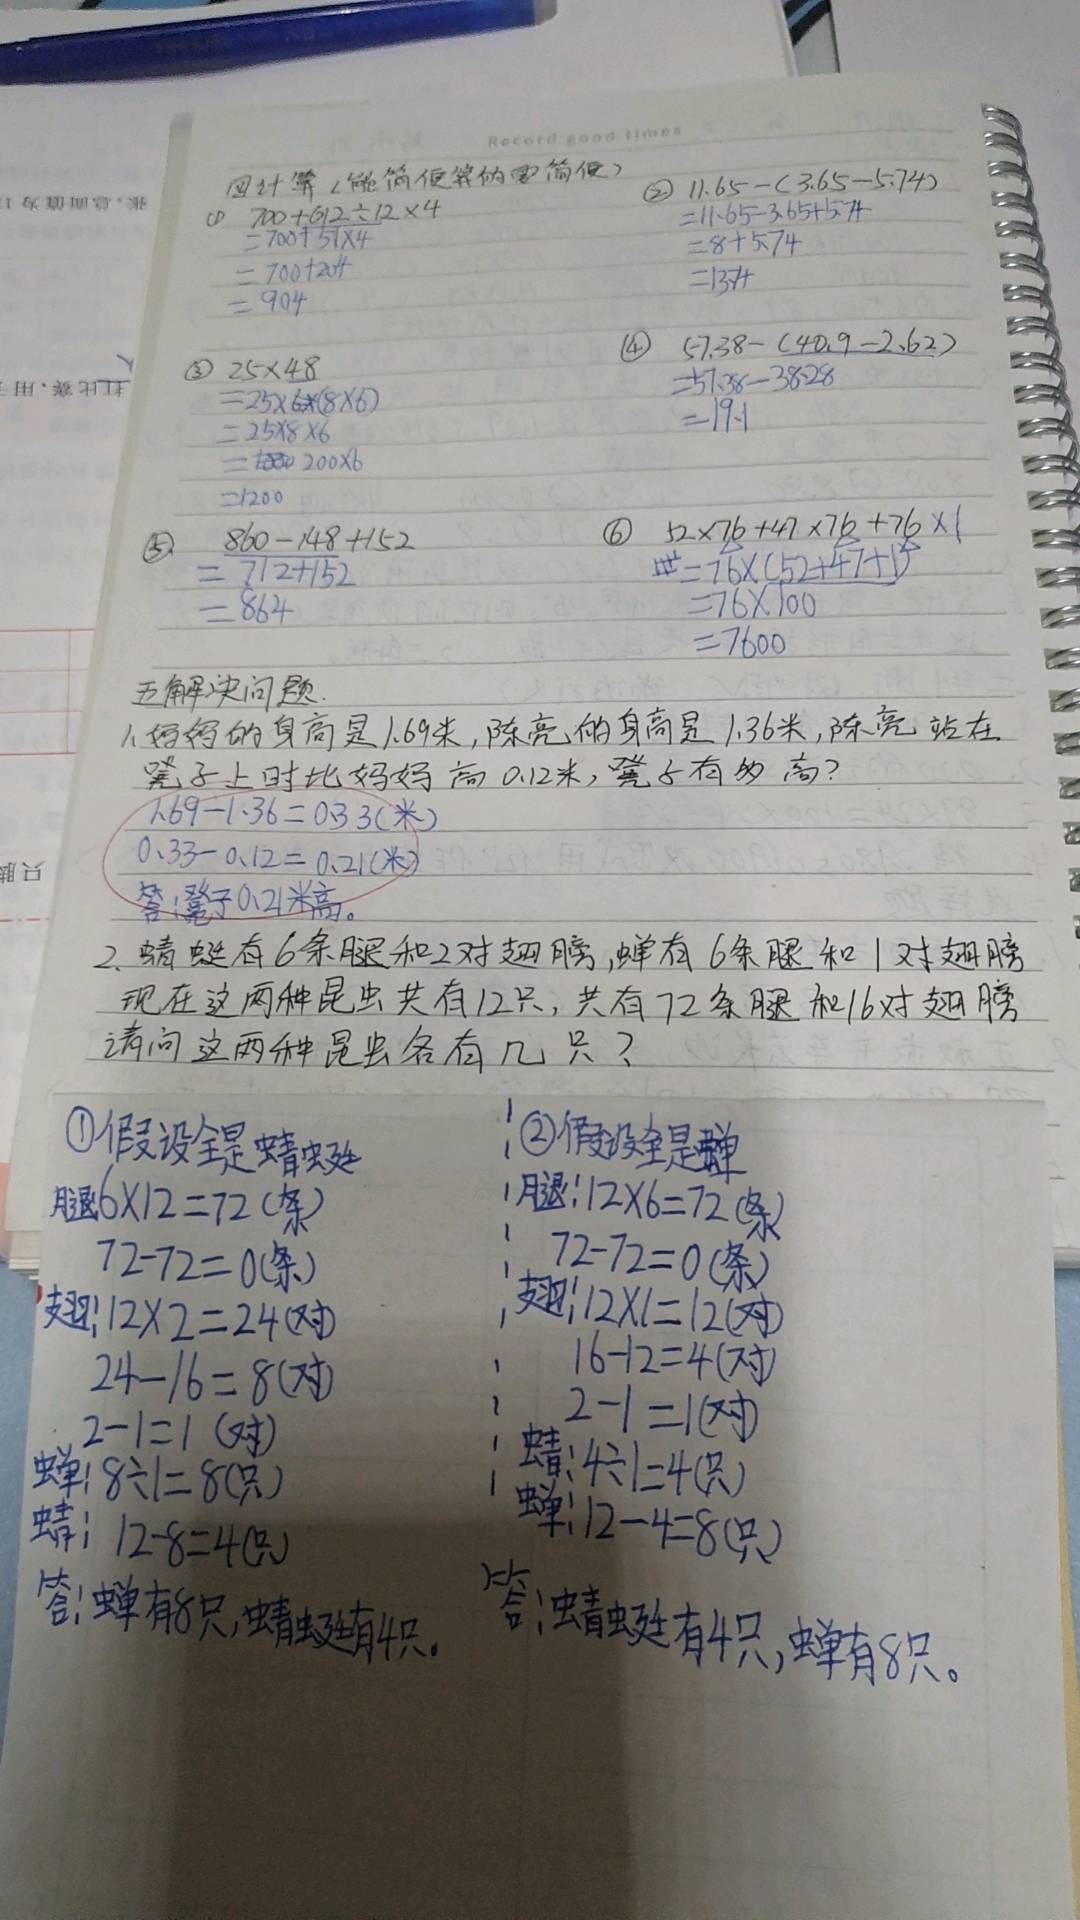 Record good times
四计算(能简便算的要简便)
① 700+612÷12×4
=700+51×4
=700+204
=904
② 11.65-(3.65-5.74)
=11.65-3.65+5.74
=8+5.74
=13.74
③ 25×48
=25×(8×6)
=25×8×6
=200×6
=1200
④ 57.38-(40.9-2.62)
=57.38-38.28
=19.1
⑤ 860-148+152
=712+152
=864
⑥ 52×76+47×76+76×1
=76×(52+47+1)
=76×100
=7600
五解决问题.
1.妈妈的身高是1.69米,陈亮的身高是1.36米,陈亮站在
凳子上时比妈妈高0.12米,凳子有多高?
1.69-1.36=0.33(米)
0.33-0.12=0.21(米)
答:凳子0.21米高。
2.蜻蜓有6条腿和2对翅膀,蝉有6条腿和1对翅膀
现在这两种昆虫共有12只,共有72条腿和16对翅膀
请问这两种昆虫各有几只?
①假设全是蜻蜓
腿:6×12=72(条)
72-72=0(条)
翅:12×2=24(对)
24-16=8(对)
2-1=1(对)
蝉:8÷1=8(只)
蜻:12-8=4(只)
答:蝉有8只,蜻蜓有4只。
②假设全是蝉
腿:12×6=72(条)
72-72=0(条)
翅:12×1=12(对)
16-12=4(对)
2-1=1(对)
蜻:4÷1=4(只)
蝉:12-4=8(只)
答:蜻蜓有4只,蝉有8只。